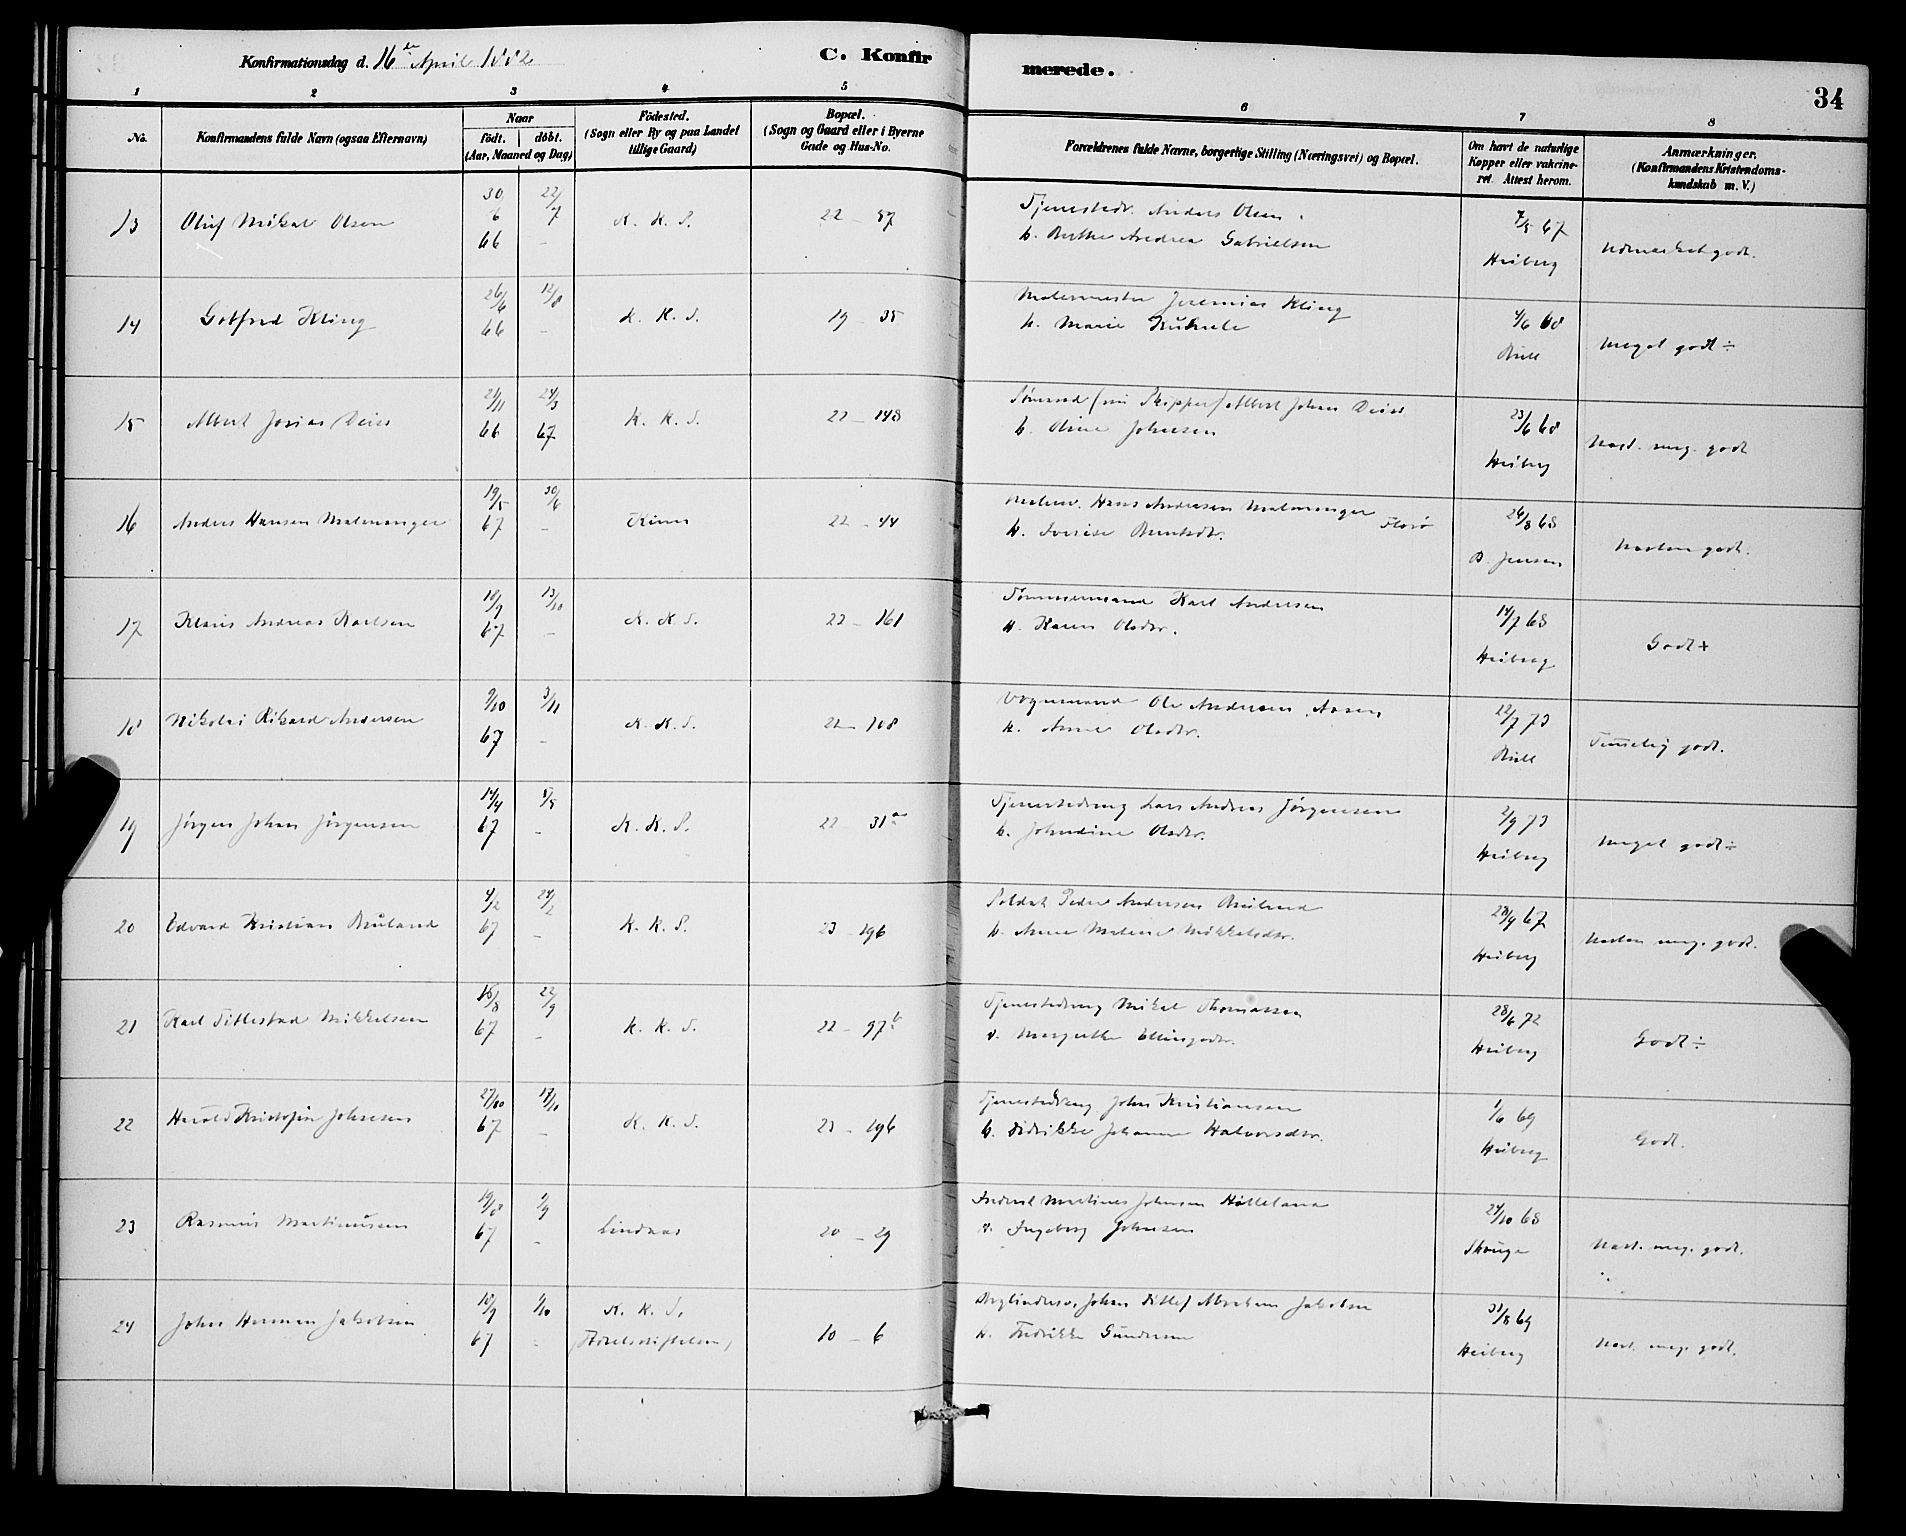 Konfirmationsdag d. 16de April 1882
C. Konfir
merede.
34
1 2 3 4 5 6 7 8
No.
Konfirmandens fulde Navn (ogsaa Efternavn)
Naar
født. døbt.
(Aar, Maaned og Dag)
Fødested.
(Sogn eller By og paa Landet
tillige Gaard)
Bopæl.
(Sogn og Gaard eller i Byerne
Gade og Hus-No.
Forældrenes fulde Navne, borgerlige Stilling (Næringsvei) og Bopæl.
Om havt de naturlige
Kopper eller vakcine-
ret. Attest herom.
Anmærkninger.
(Konfirmandens Kristendoms-
kundskab m. V.)
13 Oluf Mikal Olsen 30/6 66 22/7 - K. K. S. 22 - 87
Tjenestedr. Anders Olsen
h. Berthe Andrea Gabrielsen
7/8 67 Heiberg
Udmærket godt.
14 Gotfred Kling 26/6 66 12/8 - K. K. S. 19 - 35
Malermester Jeremias Kling
h. Marie
4/6 68 Bull
Meget godt ÷
15 Albert Josias Deiss 21/11 66 24/3 67 K. K. S. 22 - 148
Sømand (nu Skipper) Albert Johan Deiss
h. Oline Johnsen
23/6 68 Heiberg
Næst. meg. godt
16 Anders Hansen Malmanger 19/5 67 30/6 - Kinn 22 - 44
Hans Andersen Malmanger
h. Bentsdtr. Florø
26/8 68 D. Jensen
Næsten godt.
17 Klaus Andreas Karlsen 18/9 67 13/10 - K. K. S. 22 - 161
Tømmermand Karl Andersen
h. Karen Olsdtr.
14/7 68 Heiberg
Godt +
18 Nikolai Rikard Andersen 9/10 67 3/11 - K. K. S. 22 - 108
Vognmand Ole Andersen Aasen
h. Anne Olsdtr.
22/7 73 Bull
Temmelig godt.
19 Jørgen Johan Jørgensen 14/4 67 5/5 - K. K. S. 22 31a
Tjenestedreng Lars Andreas Jørgensen
h. Johndine Olsdtr.
2/9 73 Heiberg
Meget godt ÷
20 Edvard Kristian Bruland 4/2 67 24/2 - K. K. S. 23 - 196
Soldat Peder Andersen Bruland
h. Anne Malene Mikkelsdtr.
28/9 67 Heiberg
Næsten meg. godt.
21 Karl Tillestad Mikkelsen 15/8 67 22/9 - K. K. S. 22 - 97b
Tjenestedreng Mikal Thomassen
v. Margrethe Ellingsdtr.
28/6 72 Heiberg
Godt ÷
22 Harald Kristofer Johnsen 27/10 67 17/10 - K. K. S. 23 - 196
Tjenestedreng John Kristiansen
h. Didrikke Johanne Halvorsdtr.
1/6 69 Heiberg
Godt.
23 Rasmus Martinusen 19/8 67 1/9 - Lindaas 20 - 29
Martines Johnsen Hølleland
v. Ingeborg Johnsen
24/10 68 Skouge
Næst. meg. godt.
24 Johan Herman Jakobsen 18/9 67 1/10 - K. K. S. (Fødselsstiftelsen) 10 - 6
Johan Ditlef Abraham Jakobsen
h. Fredrikke Gundersen
31/8 69 Heiberg
Næst. meg. godt.